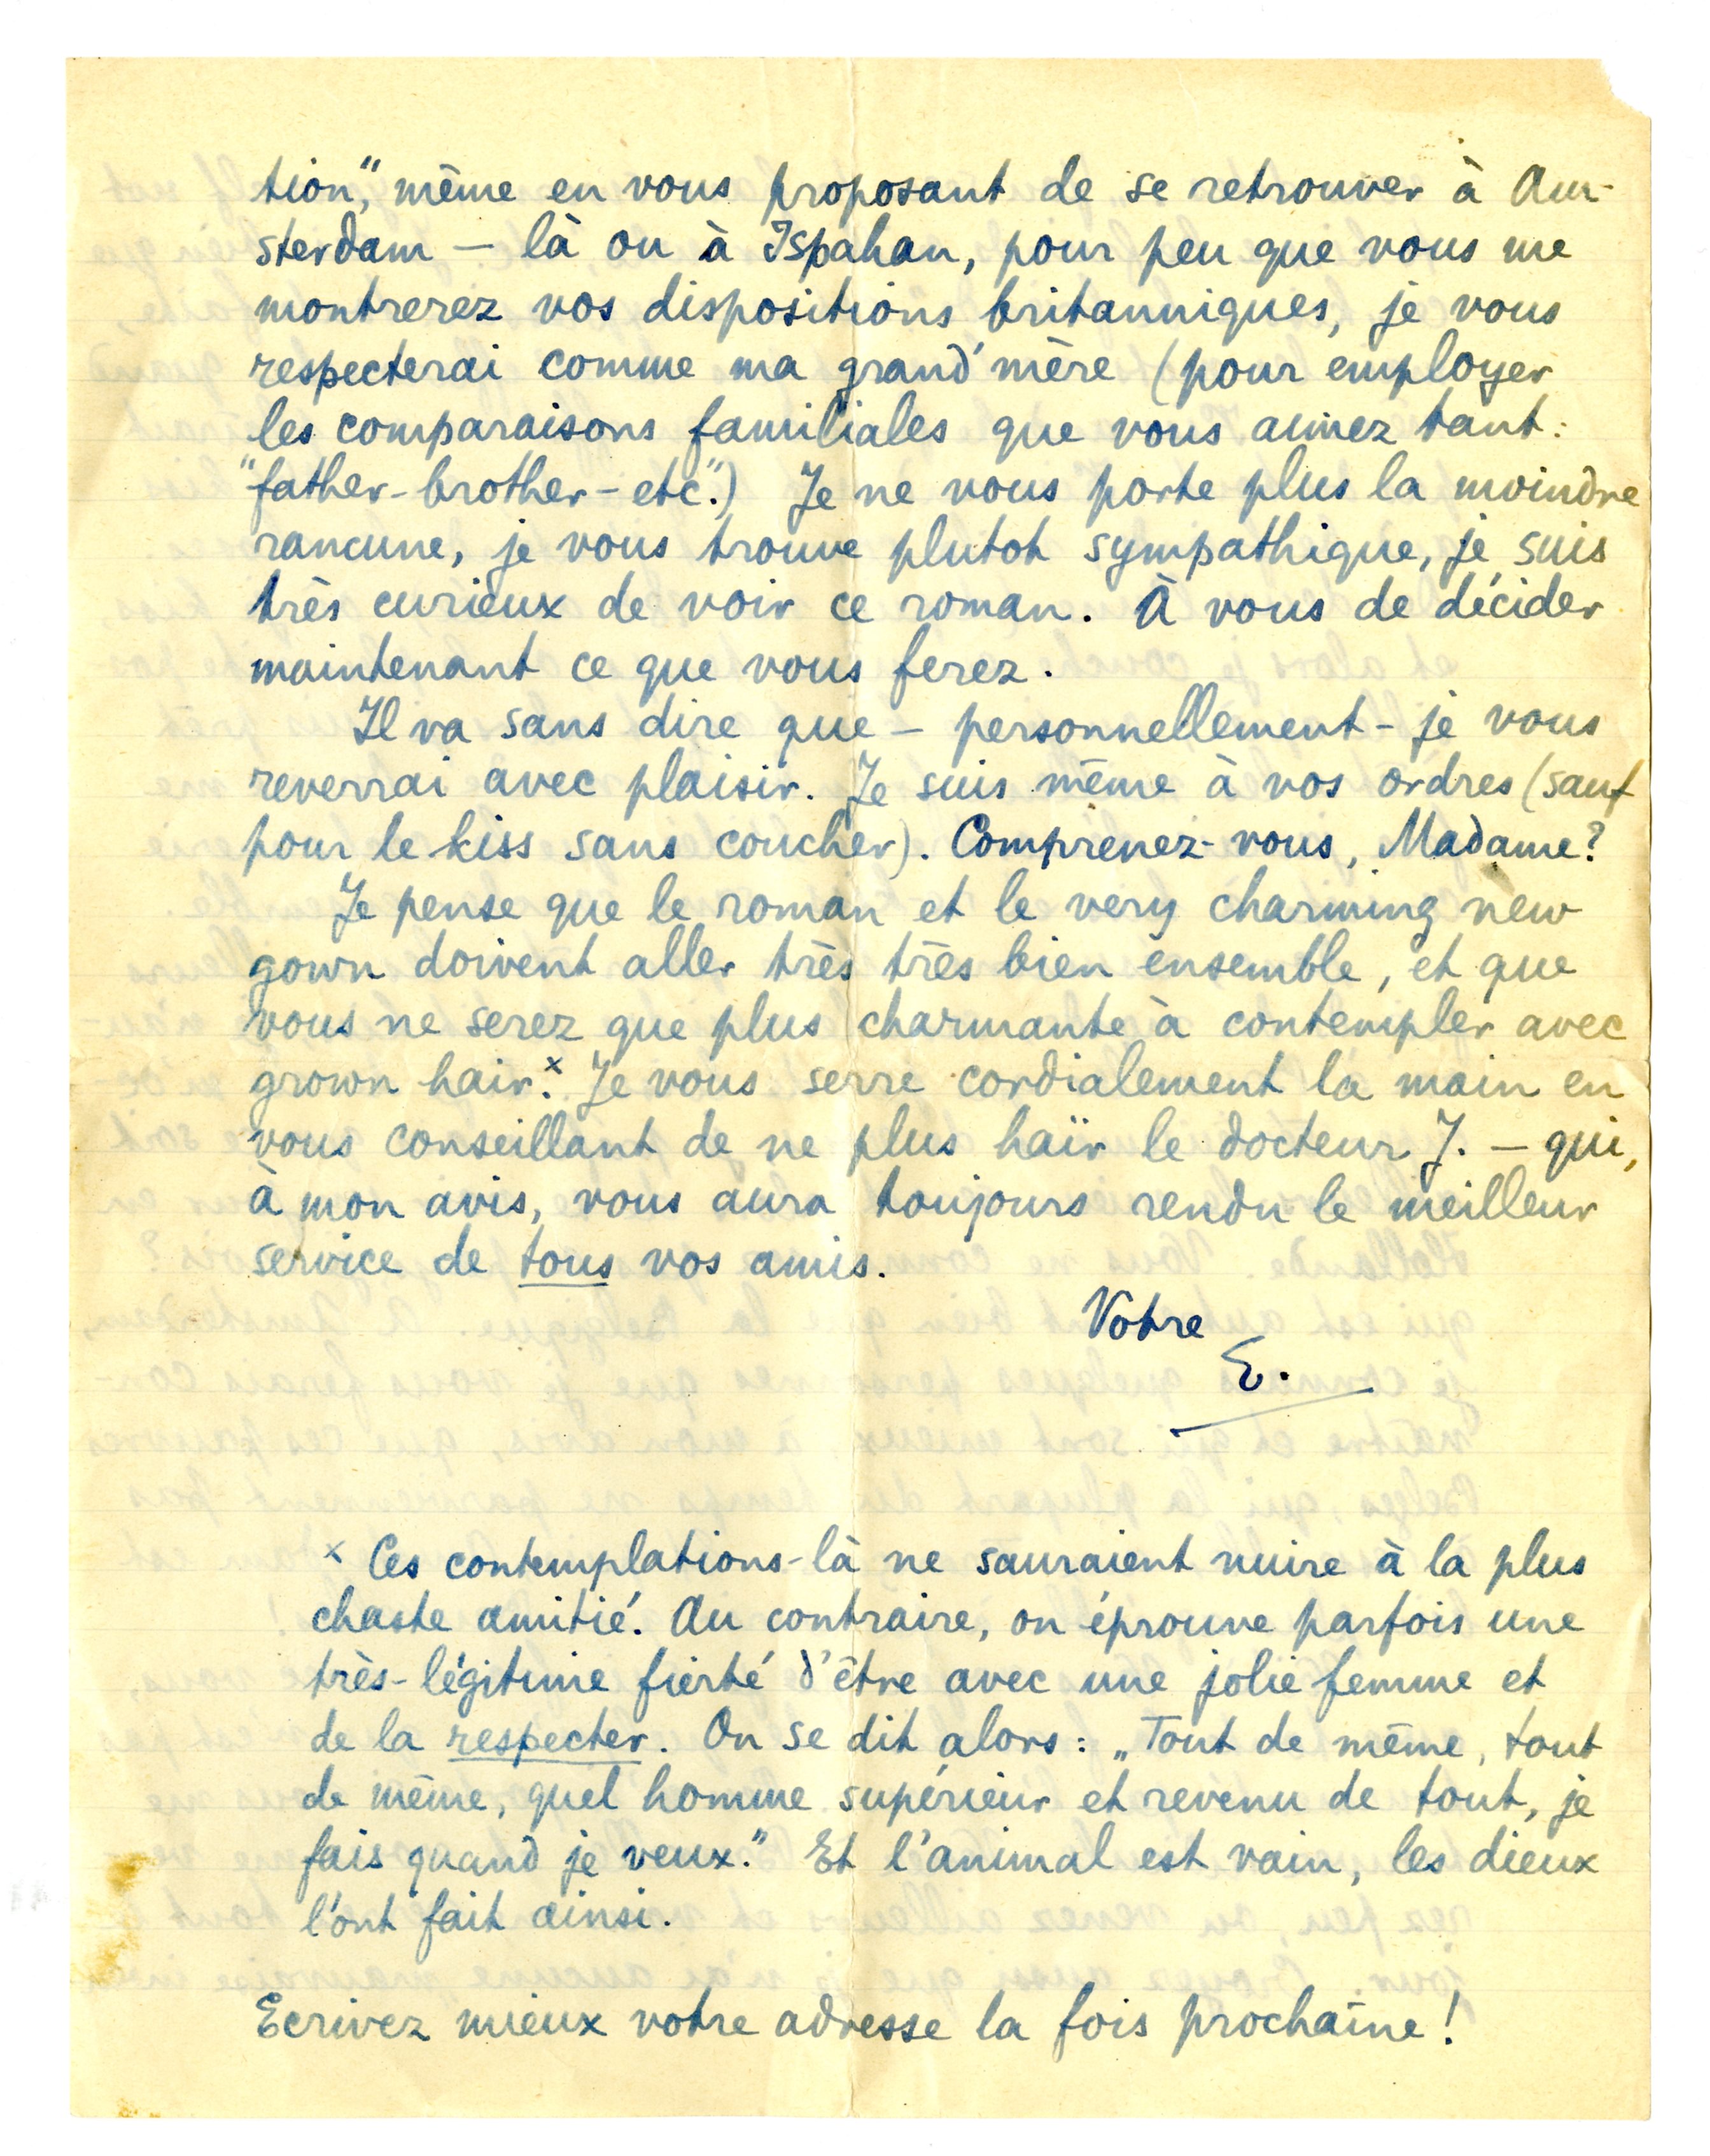 tion", même en vous proposant de se retrouver à Am-
sterdam — là ou à Ispahan, pour peu que vous me
montrerez vos dispositions britanniques, je vous
respecterai comme ma grand'mère (pour employer
les comparaisons familiales que vous aimez tant:
"father-brother-etc".) Je ne vous porte plus la moindre
rancune, je vous trouve plutot sympathique, je suis
très curieux de voir ce roman. À vous de décider
maintenant ce que vous ferez.
Il va sans dire que — personnellement - je vous
reverrai avec plaisir. Je suis même à vos ordres (sauf
pour le kiss sans coucher). Comprenez-vous, Madame?
Je pense que le roman et le very charming new
gown doivent aller très très bien ensemble, et que
vous ne serez que plus charmante à contempler avec
grown hair.ˣ Je vous serre cordialement la main en
vous conseillant de ne plus haïr le docteur J. — qui,
à mon avis, vous aura toujours rendu le meilleur
service de tous vos amis.
Votre
E.
ˣ Ces contemplations-là ne sauraient nuire à la plus
chaste amitié. Au contraire, on éprouve parfois une
très-légitime fierté d'être avec une jolie femme et
de la respecter. On se dit alors: „Tout de même, tout
de même, quel homme supérieur et revenu de tout, je
fais quand je veux." Et l'animal est vain, les dieux
l'ont fait ainsi.
Ecrivez mieux votre adresse la fois prochaîne!